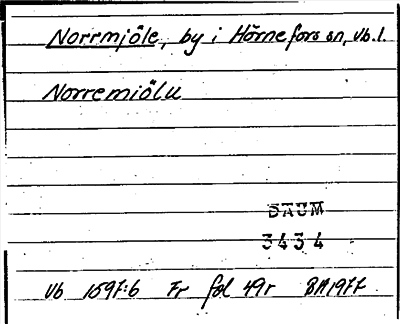 Norrmjöle, by i Hörnefors sn, Vb.l.
Norremiölu
DAUM
3434
Vb 1597:6 Fr fol 49r 1977